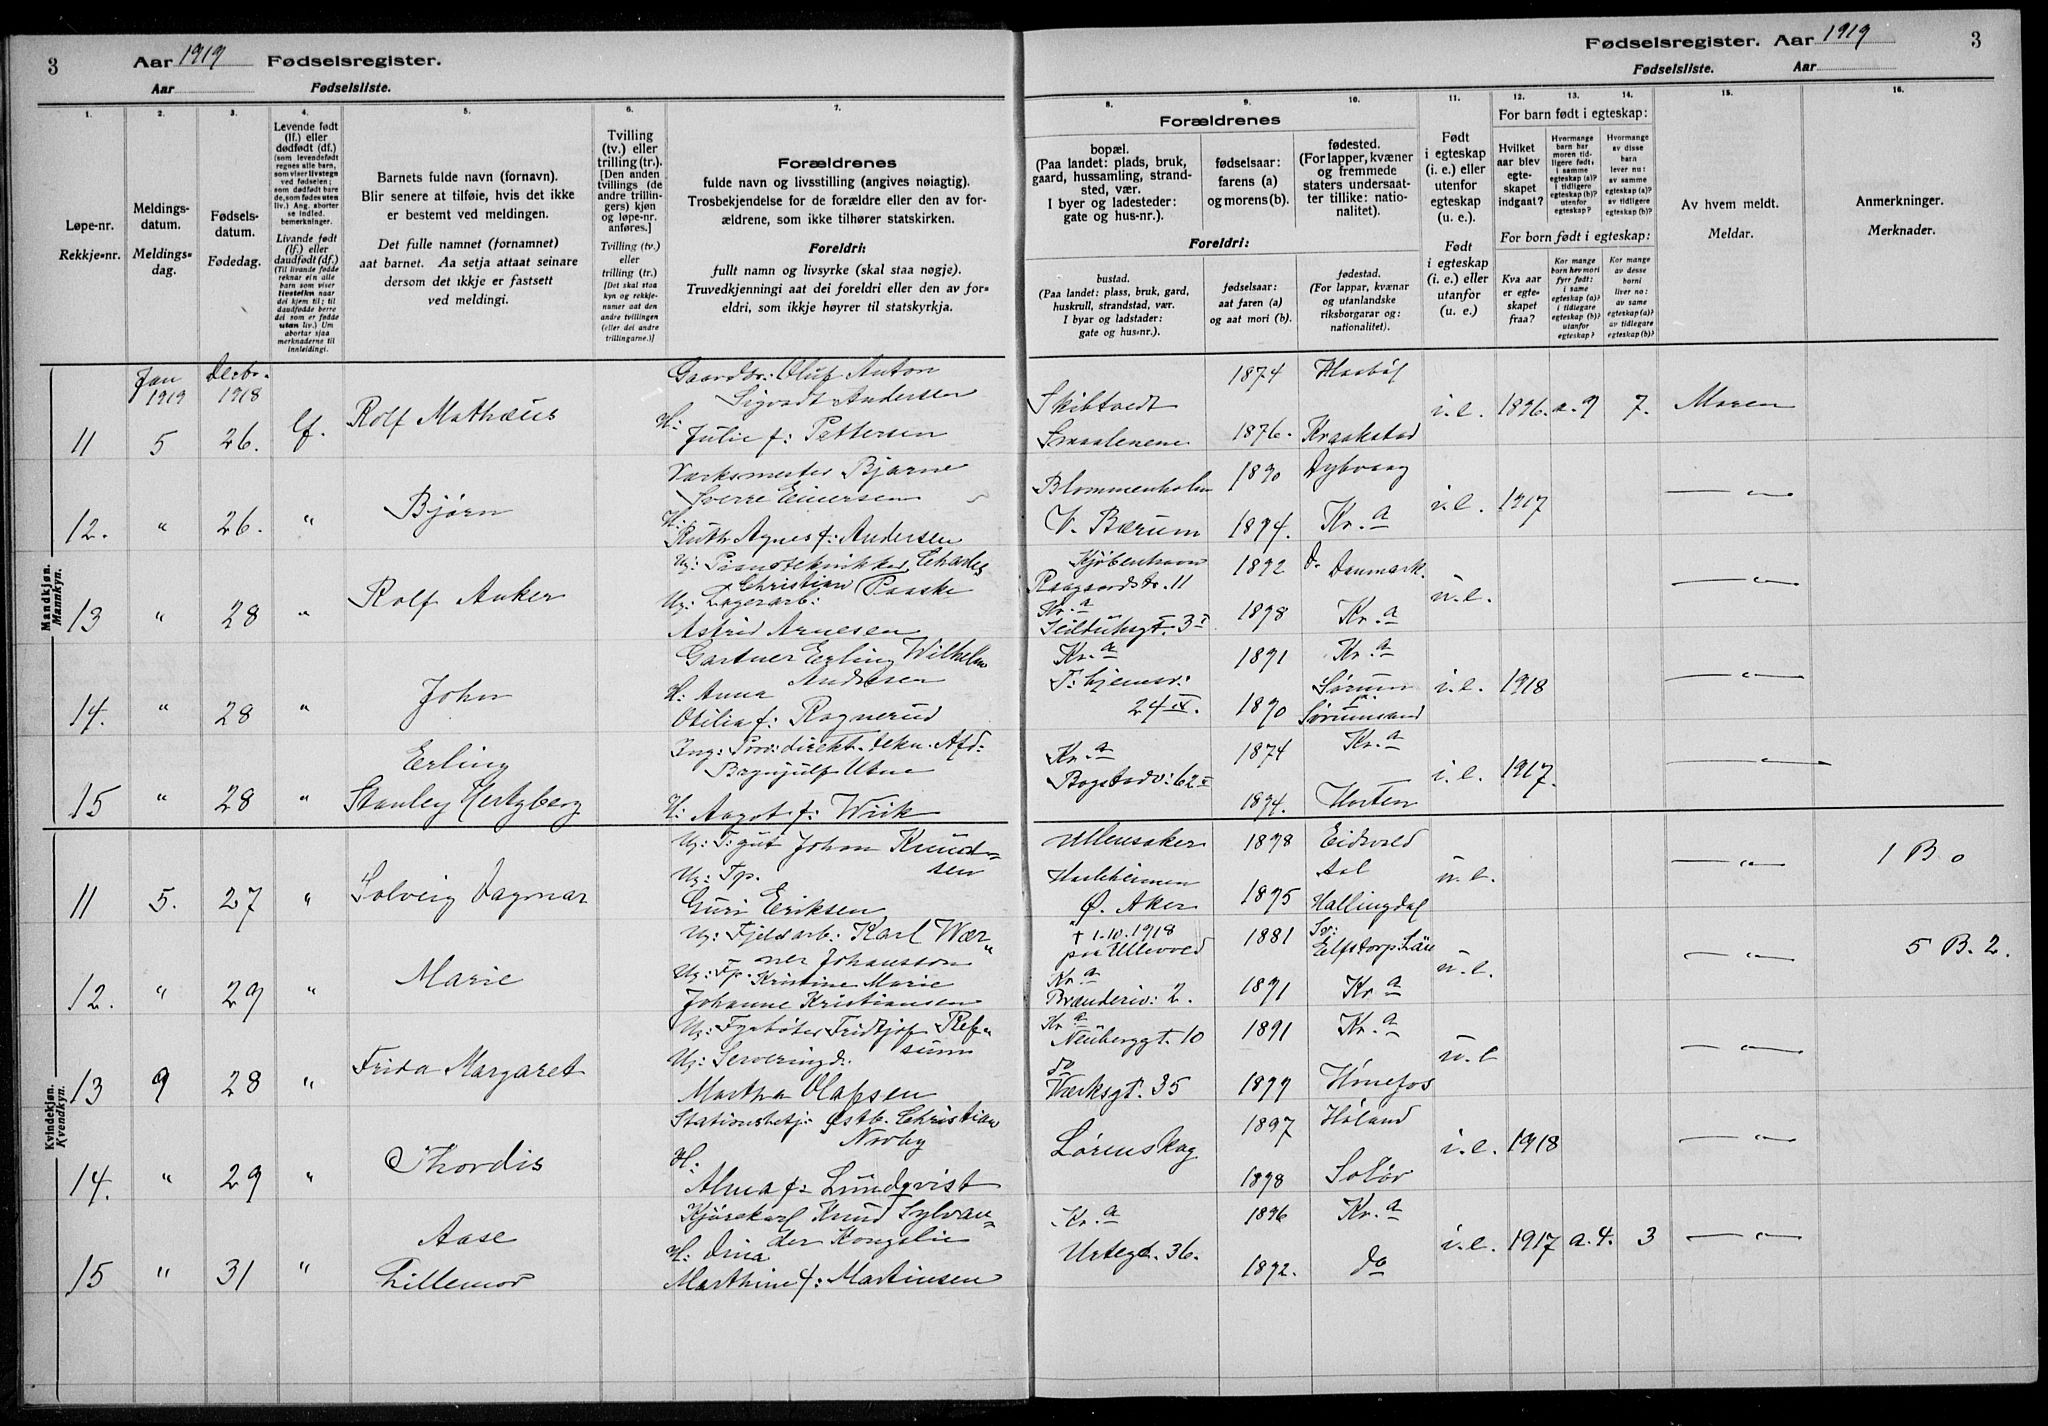 3 Aar 1919 Fødselsregister.
Aar Fødselsliste.
1.
2.
3.
4.
5.
6.
7.
Løpe-nr.
Rekkje-nr.
Meldings-
datum.
Meldings-
dag.
Fødsels-
datum.
Fødedag.
Levende født
(lf.) eller
dødfødt (df.)
(som levendefødt
regnes alle barn,
som viser livstegn
ved fødselen;
som dødfødt bare
de, som fødes uten
liv.) Ang. aborter
se indled.
bemerkninger.
Livande født
(lf.) eller
daudfødt (df.)
(Til livande fødde
reknar ein alle
born som viser
livsteikn naar
dei kjem til; til
daudfødde berre
dei som er fødde
utan liv.) Um
abortar sjaa
merknaderne til
innleidingi.
Barnets fulde navn (fornavn).
Blir senere at tilføie, hvis det ikke
er bestemt ved meldingen.
Det fulle namnet (fornamnet)
aat barnet. Aa setja attaat seinare
dersom det ikkje er fastsett
ved meldingi.
Tvilling
(tv.) eller
trilling (tr.).
[Den anden
tvillings (de
andre trillin-
gers) kjøn
og løpe-nr.
anføres.]
Tvilling (tv.)
eller
trilling (tr.)
[Det skal staa
kyn og rekkje-
numer aat den
andre tvillingen
(eller dei andre
trillingarne.)]
Forældrenes
fulde navn og livsstilling (angives nøiagtig).
Trosbekjendelse for de forældre eller den av for-
ældrene, som ikke tilhører statskirken.
Foreldri:
fullt namn og livsyrke (skal staa nøgje).
Truvedkjenningi aat dei foreldri eller den av for-
eldri, som ikkje høyrer til statskyrkja.
Mandkjøn.
Mannkyn.
Jan 1919 Decbr. 1918
11 5 26. lf. Rolf Mathæus
Gaardbr: Oluf Anton
Sigvadt Andersen
H: Julie f: Pettersen
12. " 26. " Bjørn
Værksmester Bjarne
Sverre Einersen
H: Ruth Agnes f: Andersen
13 " 28 " Rolf Anker
Ug: Pianotekniker Charles
Christian Paaske
Ug: Lagerarb:
Astrid Arnesen
14. " 28 " John
Gartner Erling Wilhelm
Andresen
H: Anna
Otilia f: Ragnerud
15 " 28 " Erling
Stanley Hertzberg
Brynjulf Utne
H: Aagot f: Wiik
Kvindekjøn.
Kvendkyn.
11 5. 27 " Solveig Dagmar
Ug: T: gut Johan Knud-
sen
Ug: Tp.
Guri Eriksen
12. " 29 " Marie
Ug: Fjeldarb: Karl Wær-
ner Johansson
Ug: Tp. Kristine Marie
Johanne Kristiansen
13 9 28 " Frida Margaret
Ug: Fyrbøter Fridtjof Ref-
sum
Ug: Serveringd.
Martha Olafsen
14. " 29 " Thordis
Stationsbetj. Østb. Christian
Nordby
H:
Alma f: Lundqvist
15 " 31 " Aase
Lillemor
Kjørekarl Knud Sylvan-
der Kongslie
H: Dina
Marthine f: Martinsen
Fødselsregister. Aar 1919 3
Fødselsliste. Aar
8.
9.
10.
11.
12.
13.
14.
15.
16.
Forældrenes
bopæl.
(Paa landet: plads, bruk,
gaard, hussamling, strand-
sted, vær.
I byer og ladesteder:
gate og hus-nr.).
fødselsaar:
farens (a)
og morens (b).
fødested.
(For lapper, kvæner
og fremmede
staters undersaat-
ter tillike: natio-
nalitet).
Foreldri:
bustad.
(Paa landet: plass, bruk, gard,
huskrull, strandstad, vær.
I byar og ladstader:
gate og hus-nr.).
fødselsaar:
aat faren (a)
og aat mori (b).
fødestad.
(For lappar, kvænar
og utanlandske
riksborgarar og:
nationalitet).
Født
i egteskap
(i. e.) eller
utenfor
egteskap
(u. e.).
Født
i egteskap
(i. e.) eller
utanfor
egteskap
(u. e.)
For barn født i egteskap:
Hvilket
aar blev
egte-
skapet
indgaat?
Hvormange
barn har
moren tid-
ligere født:
i samme
egteskap (a)?
i tidligere
egteskap (b)?
utenfor
egteskap?
Hvormange
av disse
barn
lever nu:
av samme
egteskap (a)?
av tidligere
egteskap (b)?
For born født i egteskap:
Kva aar
er egte-
skapet
fraa?
Kor mange
born hev mori
fyrr født:
i same
egteskap (a)?
i tidlegare
egteskap (b)?
utanfor
egteskap?
Kor mange
av desse
borni
liver no:
av same
egteskap (a)?
av tidlegare
egteskap (b)?
Av hvem meldt.
Meldar.
Anmerkninger.
Merknader.
Skibtvedt 1874 Haabøl
Smaalenene 1876. Kraakstad
i.e. 1896. a. 9 7. Moren
Blommenholm 1890 Dybvaag
V. Bærum 1894. Kr.a
i.e. 1917 — " —
Kjøbenhavn 1892 D. Danmark.
Raagaardstr. 11
Kr.a 1898 Kr.a
u.e. — " —
Kr.a 1891 Kr.a
T: hjemsv:
24 IV. 1890 Sørum
Sørumsand
i.e. 1918 — " —
Kr.a 1874 Kr.a
Bogstadv: 62 II
1894. Horten
i.e. 1917. — " —
Ullensaker 1898 Eidsvold
Ø. Aker 1895 Aal
Hallingdal
u.e. — " — 1 B. 0
† 1.10.1918 1881 Sv:
paa Ullevold
Kr.a 1891 Kr.a
Brænderiv: 2.
u.e. — " — 5 B. 2.
Kr.a 1891 Kr.a
Neuberggt. 10
do
Værksgt. 35 1899 Hønefos
u.e — " —
Lørenskog 1897 Høland
1898 Solør
i.e. 1918 — " —
Kr.a 1896 Kr.a
Urtegt. 36. 1892. do
i.e. 1917 a. 4. 3 — " —